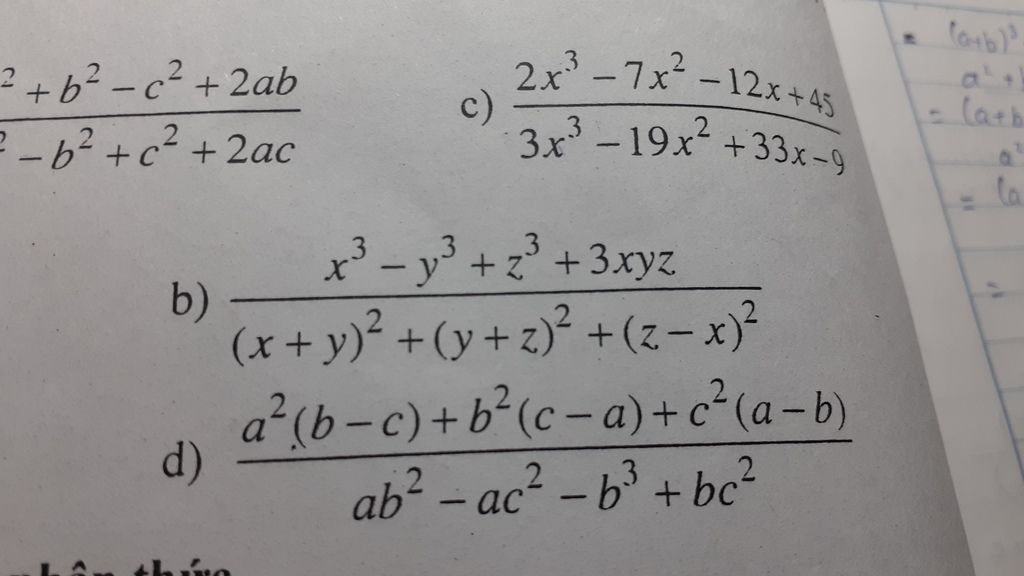 ² + b² − c² + 2ab / ² − b² + c² + 2ac
c) 2x³ − 7x² − 12x + 45 / 3x³ − 19x² + 33x − 9
b) x³ − y³ + z³ + 3xyz / (x + y)² + (y + z)² + (z − x)²
d) a²(b − c) + b²(c − a) + c²(a − b) / ab² − ac² − b³ + bc²
= (a+b)³
= (a+b
= (a
=